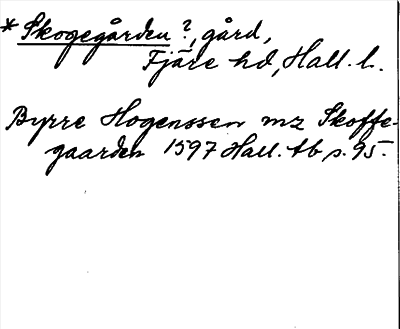 *Skogegården?, gård,
Fjäre hd, Hall. l.
Byrre Hogenssen mz Skoffe-
gaarden 1597 Hall. tb s. 95.